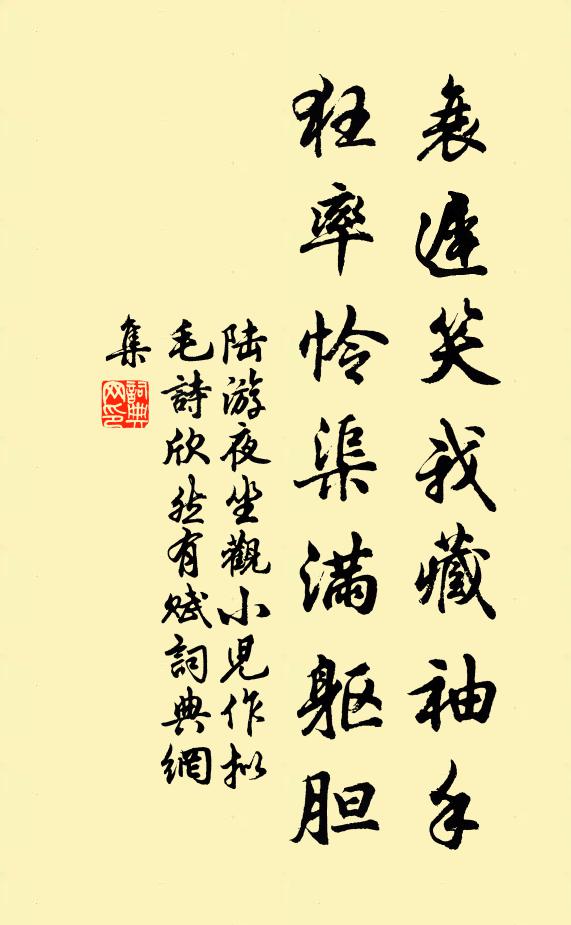 衰遲笑我藏袖手
狂率怜渠满躯胆
陆游夜坐觀小児作拟
毛詩欣然有赋詞典網
集
詞典
网印